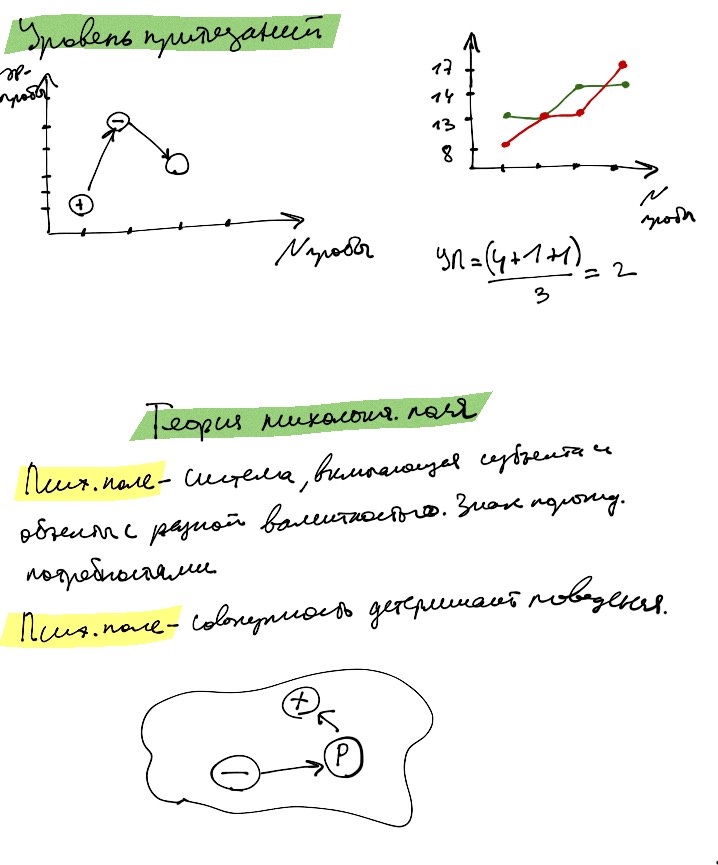 Уровень притязаний
ур-
пробы
+
-
N пробы
17
14
13
8
N
пробы
УП = (4+1+1) / 3 = 2
Теория психологич. поля
Псих. поле - система, включающая субъекта и
объекты с разной валентностью. Знак порожд.
потребностями
Псих. поле - совокупность детерминант поведения.
+
P
-